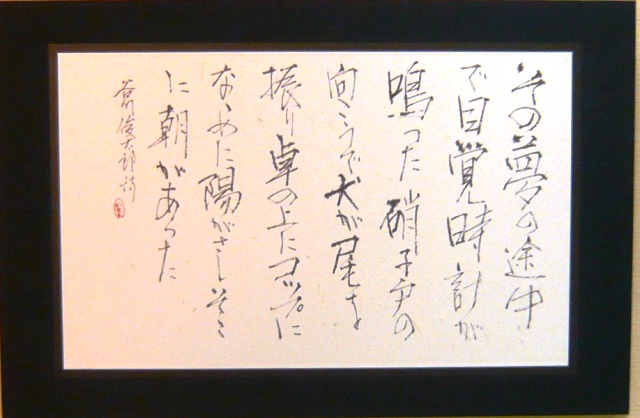 その夢の途中
で目覚時計が
鳴った硝子戸の
向こうで犬が尾を
振り卓の上にコップに
ななめに陽がさしそこ
に朝があった
谷川俊太郎 詩